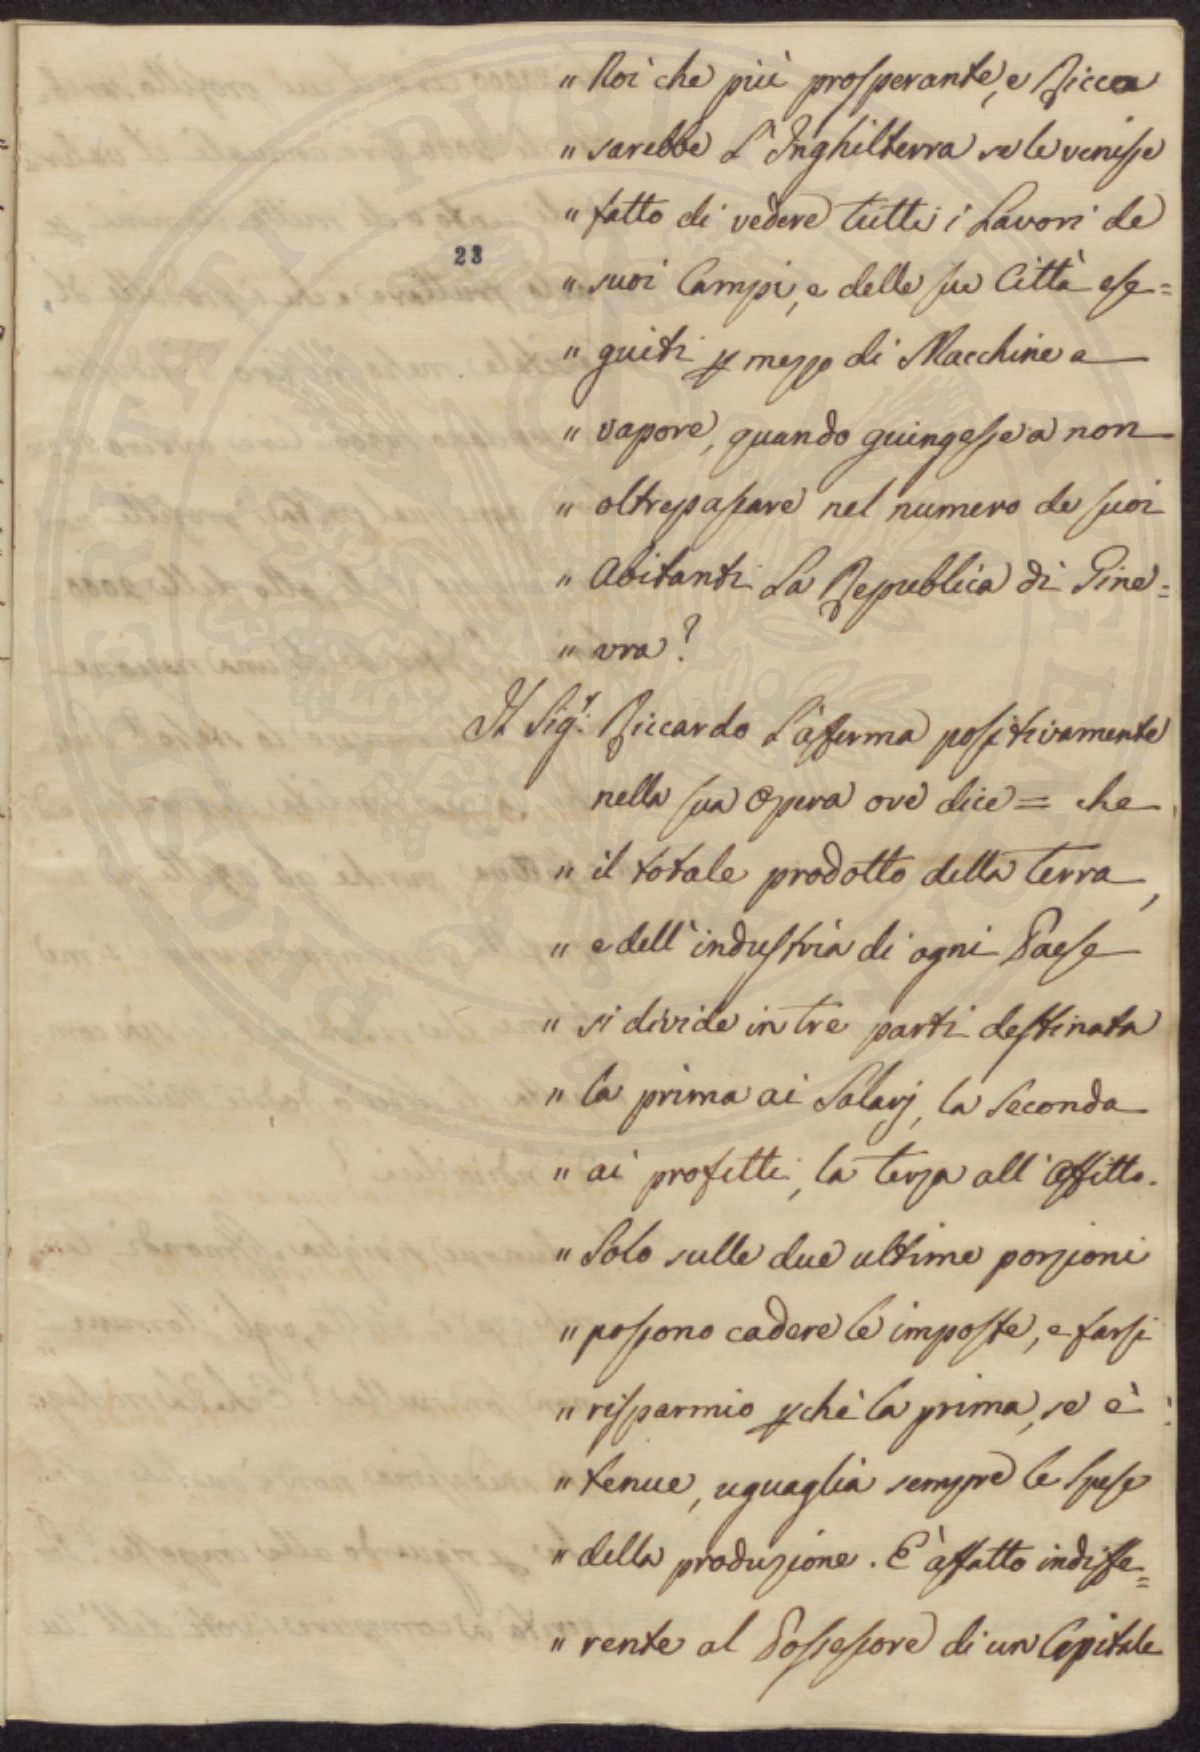 " Poi che più prosperante, e Ricca
" sarebbe L'Inghilterra se le venisse
" fatto di vedere tutti i Lavori de
23
" suoi Campi, e delle sue Città ese=
" guiti p mezzo di Macchine a
" vapore, quando guingesse a non
" oltrepassare nel numero de suoi
" Abitanti La Republica di Gine=
" vra?
Il Sig.r Riccardo L'afferma positivamente
nella sua Opera ove dice = che
" il totale prodotto della terra,
" e dell'industria di ogni Paese
" si divide in tre parti destinata
" la prima ai Salarj, la Seconda
" ai profitti, la terza all'Affitto.
" Solo sulle due ultime porzioni
" possono cadere le imposte, e farsi
" risparmio pchè la prima, se è
" tenue, uguaglia sempre le spese
" della produzione. E' affatto indiffe=
" rente al Possessore di un Capitale